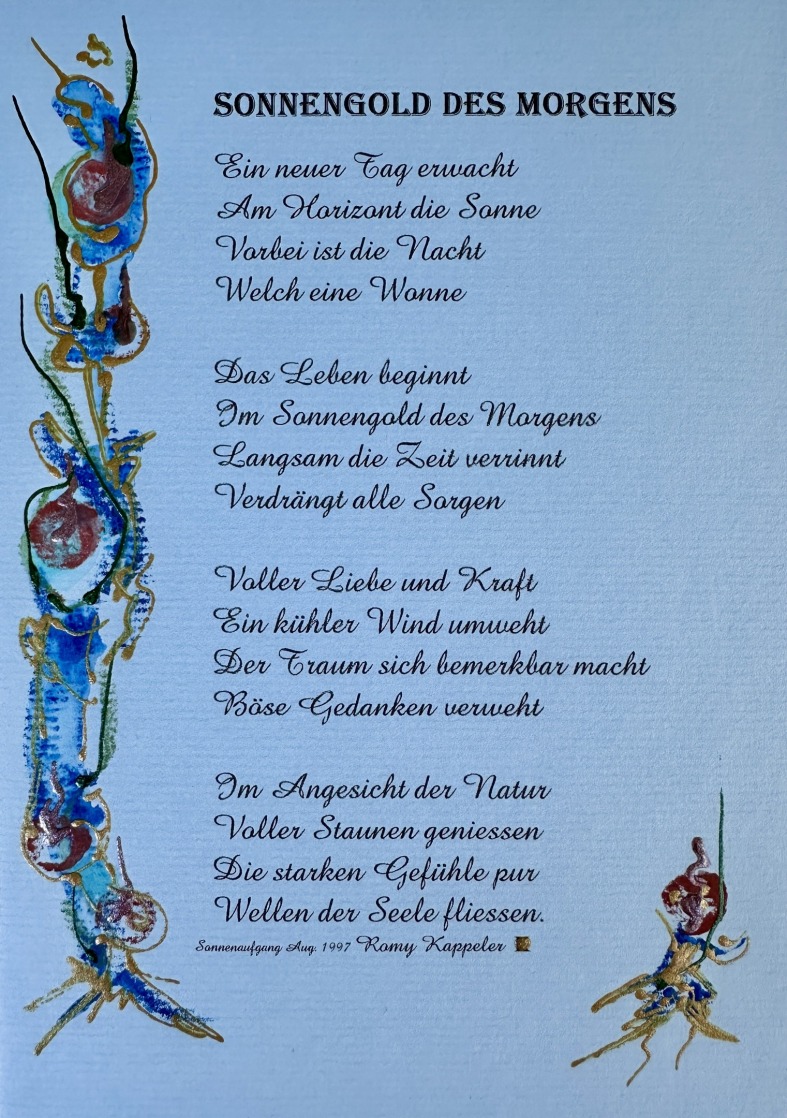 SONNENGOLD DES MORGENS
Ein neuer Tag erwacht
Am Horizont die Sonne
Vorbei ist die Nacht
Welch eine Wonne
Das Leben beginnt
Im Sonnengold des Morgens
Langsam die Zeit verrinnt
Verdrängt alle Sorgen
Voller Liebe und Kraft
Ein kühler Wind umweht
Der Traum sich bemerkbar macht
Böse Gedanken verweht
Im Angesicht der Natur
Voller Staunen geniessen
Die starken Gefühle pur
Wellen der Seele fliessen.
Sonnenaufgang Aug. 1997 Romy Kappeler